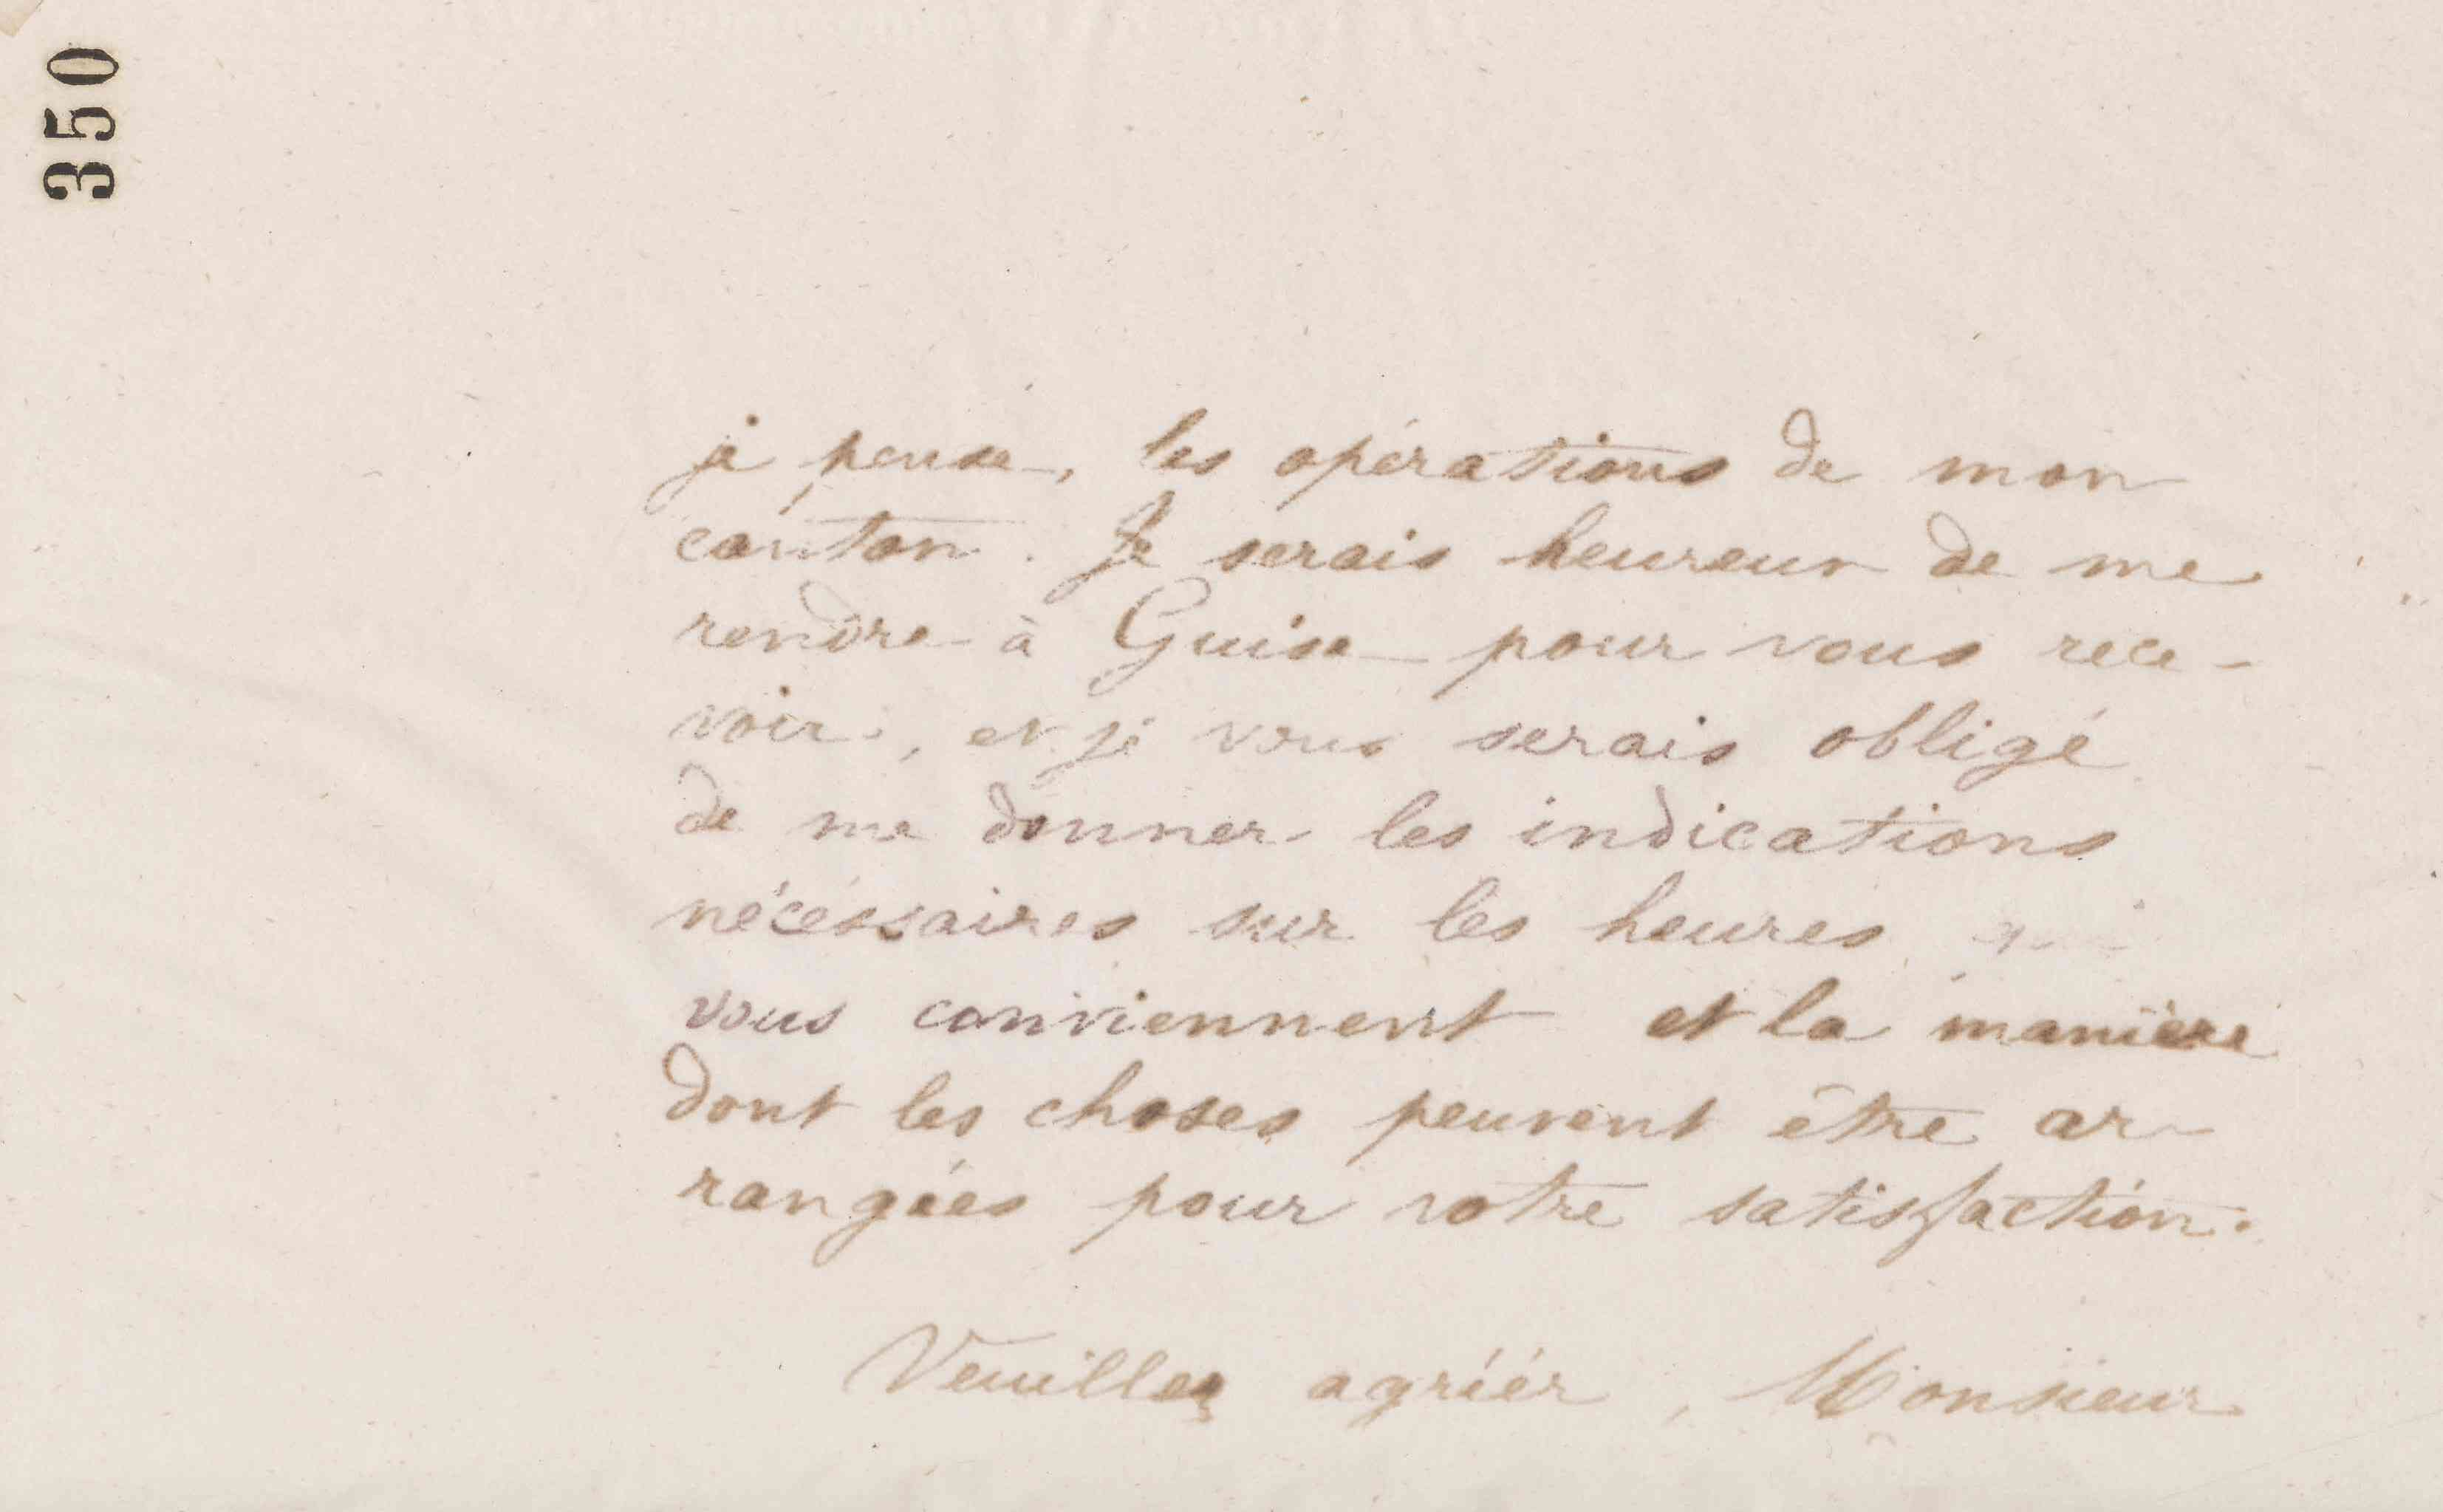 350
je pense, les opérations de mon
canton. Je serais heureux de me
rendre à Guise pour vous rece-
voir, et je vous serais obligé
de me donner les indications
nécéssaires sur les heures
vous conviennent et la manière
dont les choses peuvent être ar-
rangées pour votre satisfaction.
Veuillez agréer, Monsieur